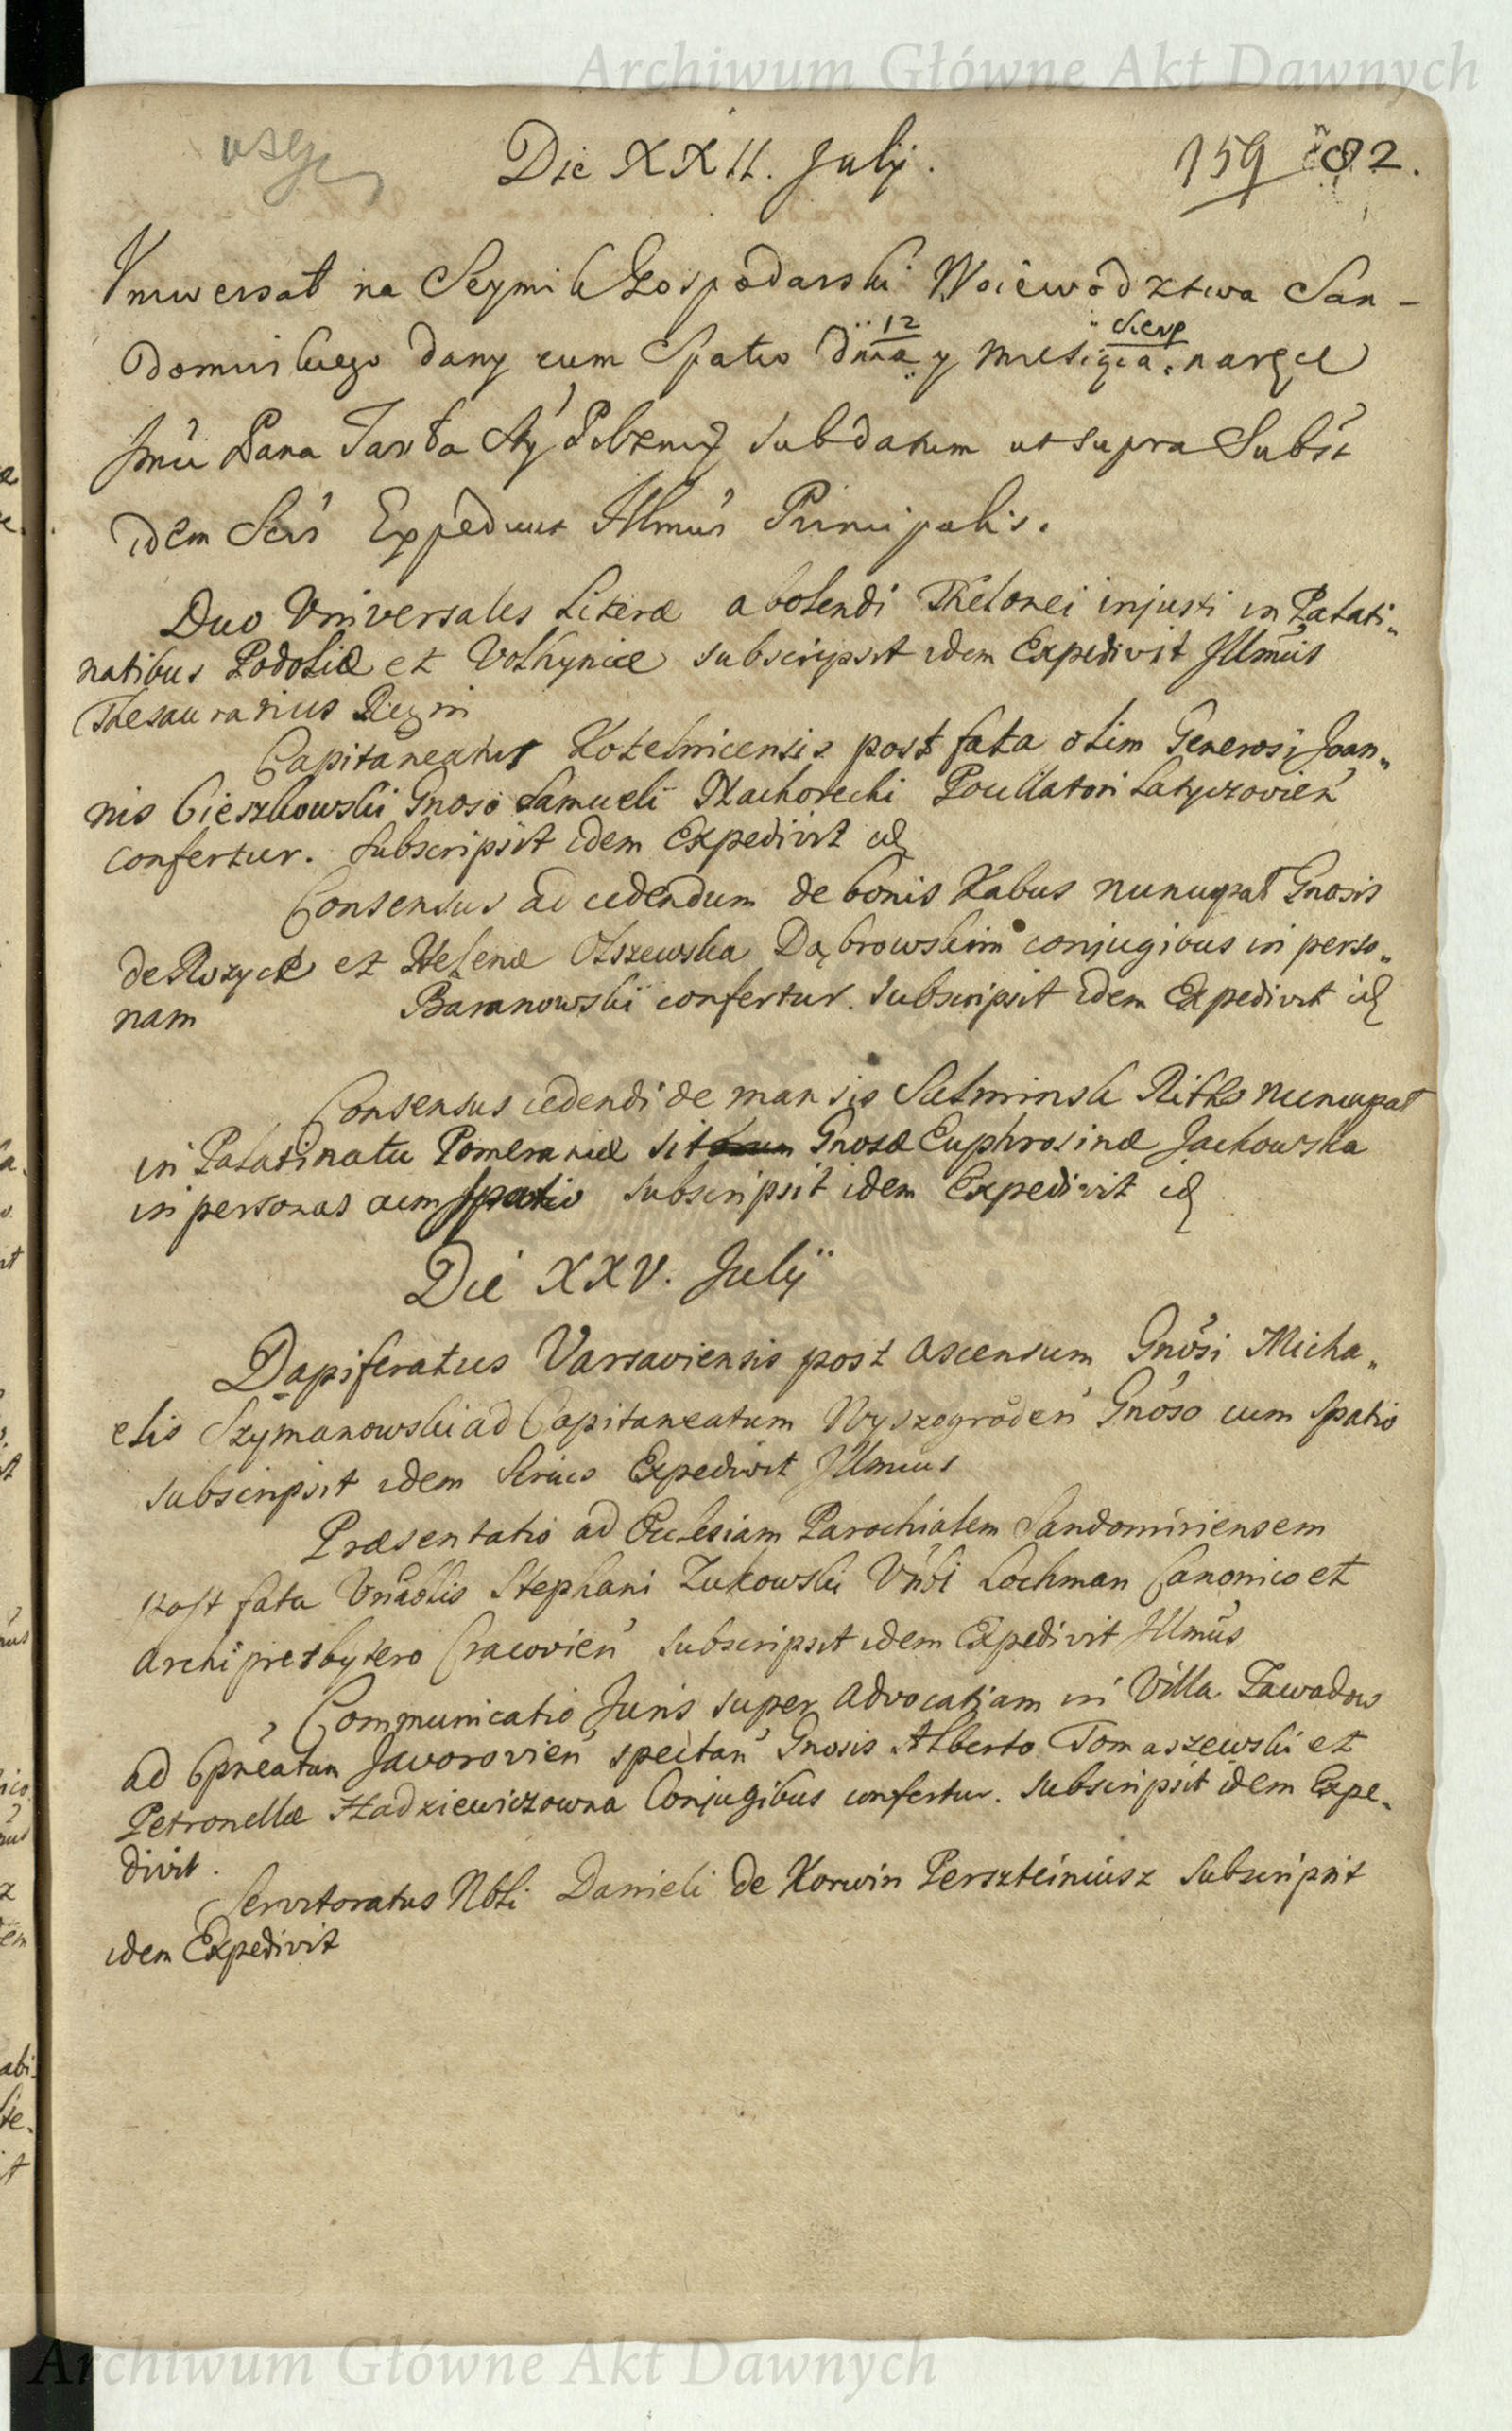 Archiwum Główne Akt Dawnych
Die XXII. Julij.
159 82.
Vniwersał na Seymik Gospodarski Woiewodztwa San-
12 Sierp
domirskiego dany cum Spatio dnia y miesiąca. na ręce
Jmci Pana Tarła Sty Pilzni sub datum ut supra Subst
idem Scrs Expediuit Illmus Principalis.
Duo Vniversales Literæ abolendi Thelonei injusti in Palati-
natibus Podoliæ et Volhyniæ subscripsit idem Expedivit Illmus
Thesaurarius Regni
Capitaneatus Kotelnicensis post fata olim Generosi Joan-
nis Cieszkowski Gnoso Samueli Nachorecki Pocillatori Latyczovien
confertur. Subscripsit idem Expedivit id
Consensus ad cedendum de bonis Kabus nuncupat Gnosis
de Rozyck et Helenæ Olszewska Dąbrowskim conjugibus in perso-
nam Baranowski confertur. Subscripsit idem Expedivit id
Consensus cedendi de mansis Salminsk Ritko nuncupat
in Palatinatu Pomeraniæ sit Gnosæ Euphrosinæ Jackowska
in personas cum spatio subscripsit idem Expedivit id
Die XXV. Julij
Dapiferatus Varsaviensis post ascensum Gnosi Micha-
elis Szymanowski ad Capitaneatum Wyszogroden Gnoso cum spatio
subscripsit idem Srius Expedivit Illmus
Præsentatio ad Ecclesiam Parochialem Sandomiriensem
post fata Vnablis Stephani Zukowski Vnbi Lochman Canonico et
Archipresbytero Cracovien subscripsit idem Expedivit Illmus
Communicatio Juris super Advocatiam in Villa Zawadow
ad Cpneatum Javorovien spectan Gnosis Alberto Tomaszewski et
Petronellæ Hadziewiczowna Conjugibus confertur. Subscripsit idem Expe-
divit.
Servitoratus Nbli Danieli de Korwin Perszteiniusz Subscripsit
idem Expedivit
Archiwum Główne Akt Dawnych